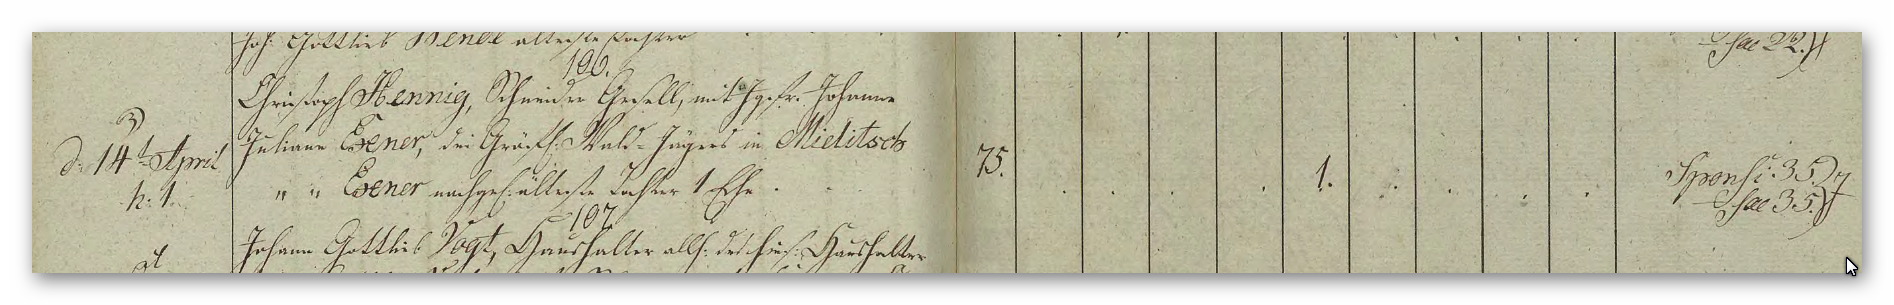 Joh: Gottlieb älteste Tochter
196.
Christoph Hennig, Schneider Gesell, mit Jgfr. Johanne
Juliane Exner, des Gräfl: Wald-Jägers in Mielitsch
" " Exner nachgel: älteste Tochter 1 Ehe
d. 14t April
h. 1.
75.
1.
Sponsi. 35.
Sae 35.
Sae 22.
197.
Johann Gottlieb Vogt, Haushälter allh: des hies: Haushälter